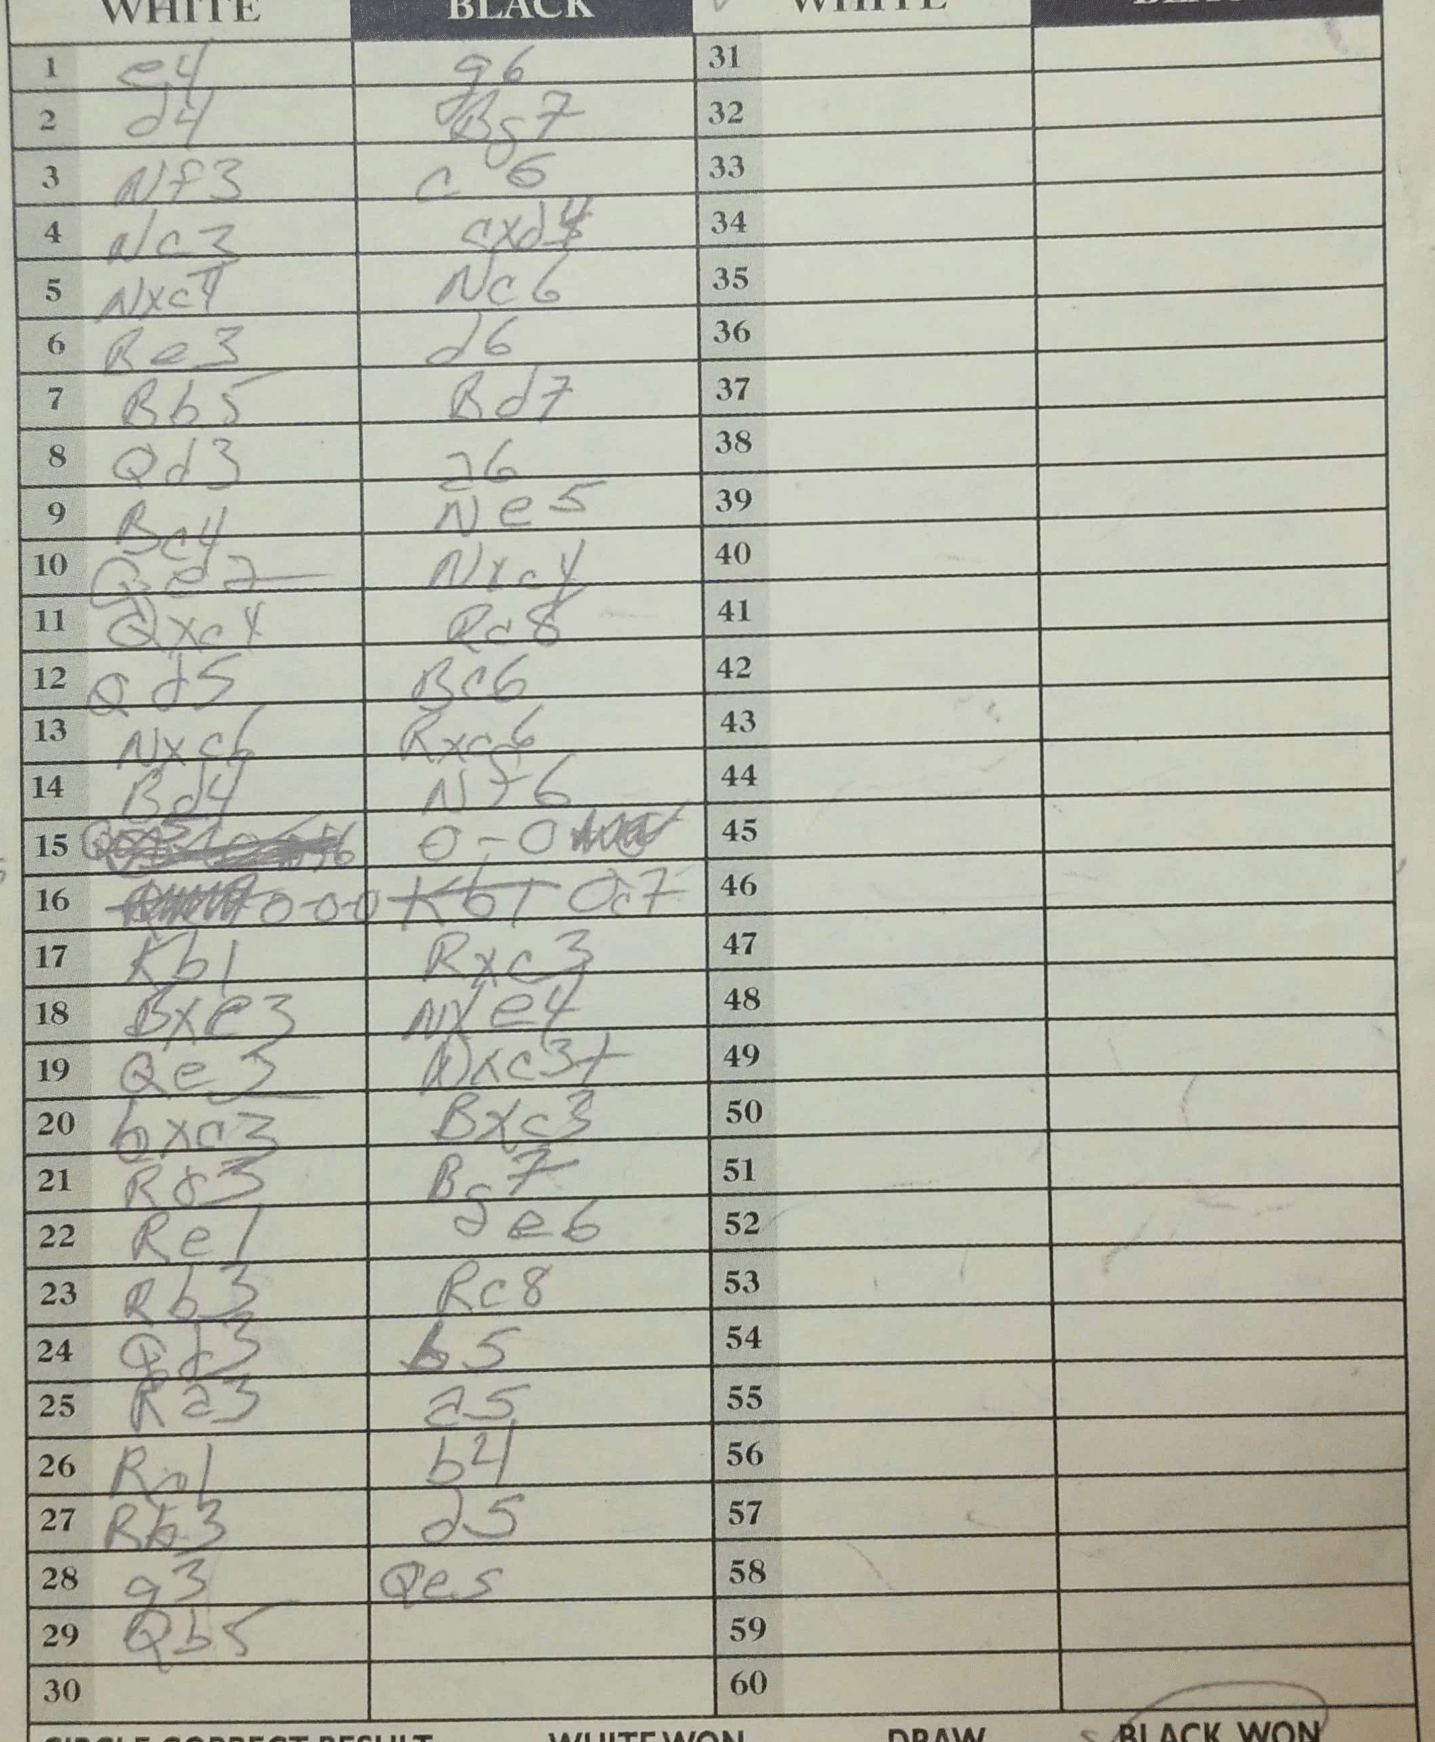 WHITE BLACK WHITE
1 e4 g6 31
2 d4 Bg7 32
3 Nf3 c6 33
4 Nc3 cxd4 34
5 Nxc4 Nc6 35
6 Be3 d6 36
7 Bb5 Bd7 37
8 Qd3 a6 38
9 Bc4 Ne5 39
10 Qe2 Nxc4 40
11 Qxc4 Rc8 41
12 Qd5 Bc6 42
13 Nxc6 Rxc6 43
14 Bd4 Nf6 44
15 0-0 45
16 0-0-0 Kb1 Qc7 46
17 Kb1 Rxc3 47
18 Bxe3 Nxe4 48
19 Qe3 Nxc3+ 49
20 bxc3 Bxc3 50
21 Rd3 Bg7 51
22 Re1 e6 52
23 Rb3 Rc8 53
24 Qd3 b5 54
25 Ra3 a5 55
26 Rc1 b4 56
27 Rb3 d5 57
28 g3 Qe5 58
29 Qb5 59
30 60
CIRCLE CORRECT RESULT WHITE WON DRAW BLACK WON